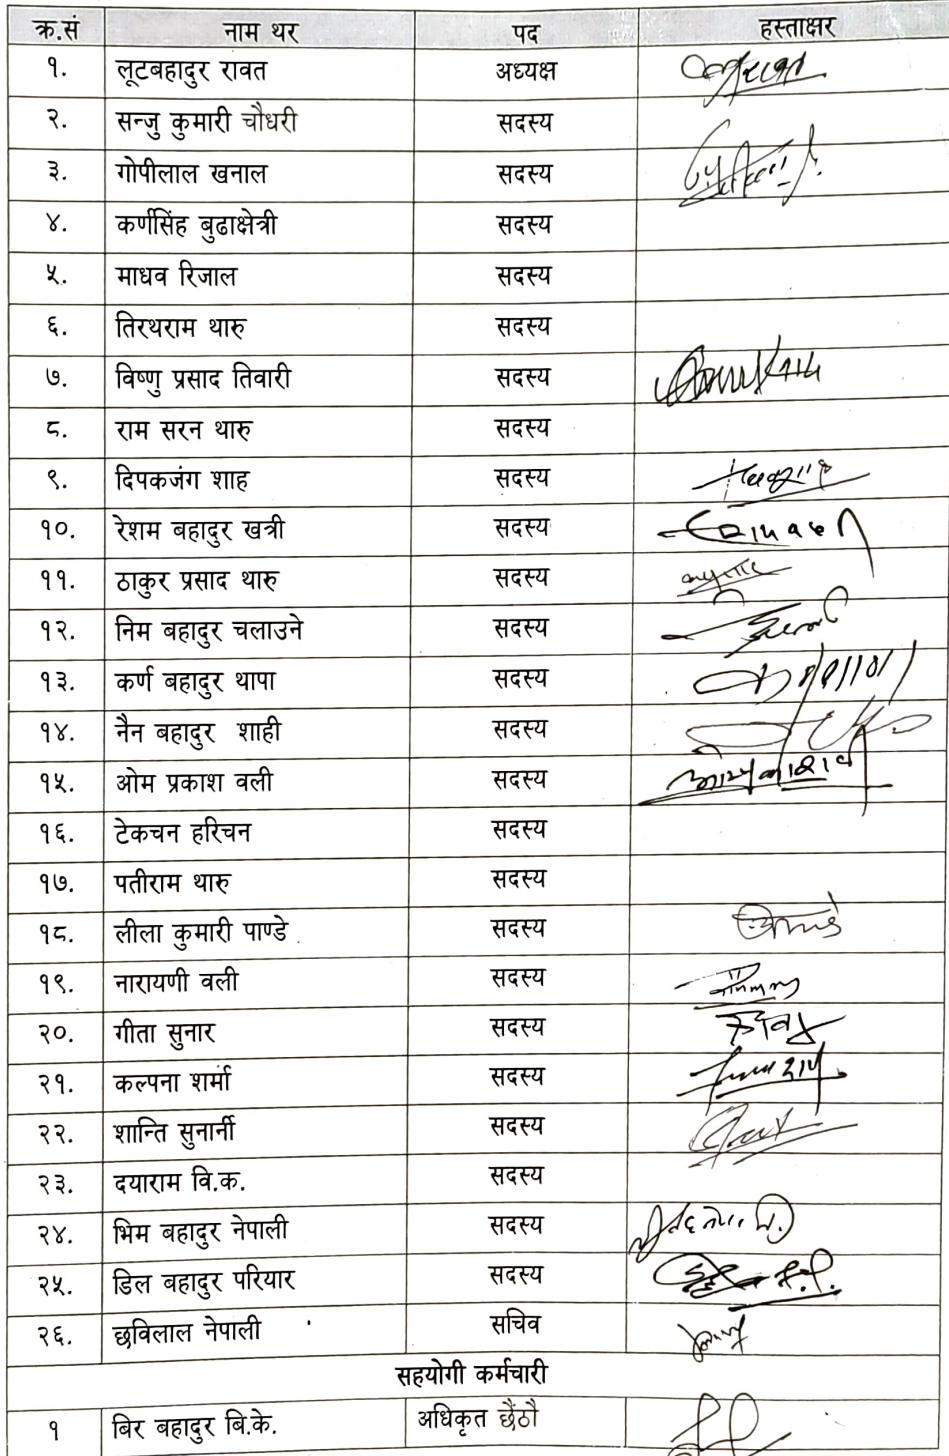 क्र.सं नाम थर पद हस्ताक्षर
१. लूटबहादुर रावत अध्यक्ष
२. सन्जु कुमारी चौधरी सदस्य
३. गोपीलाल खनाल सदस्य
४. कर्णसिंह बुढाक्षेत्री सदस्य
५. माधव रिजाल सदस्य
६. तिरथराम थारु सदस्य
७. विष्णु प्रसाद तिवारी सदस्य
८. राम सरन थारु सदस्य
९. दिपकजंग शाह सदस्य
१०. रेशम बहादुर खत्री सदस्य
११. ठाकुर प्रसाद थारु सदस्य
१२. निम बहादुर चलाउने सदस्य
१३. कर्ण बहादुर थापा सदस्य
१४. नैन बहादुर शाही सदस्य
१५. ओम प्रकाश वली सदस्य
१६. टेकचन हरिचन सदस्य
१७. पतीराम थारु सदस्य
१८. लीला कुमारी पाण्डे सदस्य
१९. नारायणी वली सदस्य
२०. गीता सुनार सदस्य
२१. कल्पना शर्मा सदस्य
२२. शान्ति सुनार्नी सदस्य
२३. दयाराम वि.क. सदस्य
२४. भिम बहादुर नेपाली सदस्य
२५. डिल बहादुर परियार सदस्य
२६. छविलाल नेपाली सचिव
सहयोगी कर्मचारी
१ बिर बहादुर बि.के. अधिकृत छैंठौ